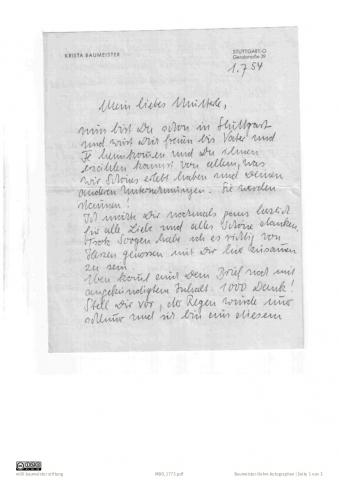 KRISTA BAUMEISTER
STUTTGART-O
Gerokstraße 39
1.7.54
Mein liebes Mutterle,
nun bist Du schon in Stuttgart
und wirst Dich freuen bis Vater und
Fe heimkommen und Du ihnen
erzählen kannst von allem, was
wir Schönes erlebt haben und Deinen
anderen Unternehmungen. Sie werden
staunen!
Ich möchte Dir nochmals ganz herzlich
für alle Liebe und alles Schöne danken.
Trotz Sorgen habe ich es richtig von
Herzen genossen mit Dir hier zusammen
zu sein.
Eben kommt mit Dein Brief noch mit
angekündigtem Inhalt. 1000 Dank!
Stell Dir vor, der Regen wurde nur
schlimmer und ich bin mit diesem
mit baumeister stiftung
Baumeister Rehm Autographen | Seite 1 von 3